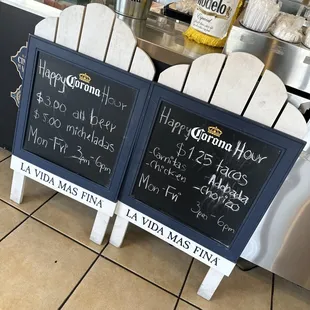 Happy Hour
Corona
$3.00 all beer
$5.00 micheladas
Mon-Fri 3pm-6pm
LA VIDA MÁS FINA
Happy Hour
Corona
$1.25 tacos
-Carnitas -Adobada
-chicken -chorizo
Mon-Fri 3pm-6pm
LA VIDA MÁS FINA
Modelo
Especial